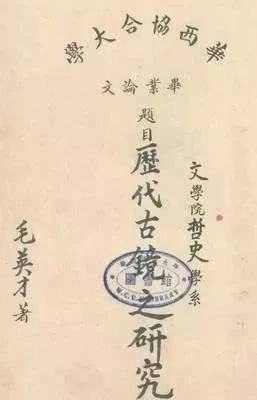 華西協合大學
畢業論文
題目歷代古鏡之研究
文學院哲史學系
毛英才著
圖書館